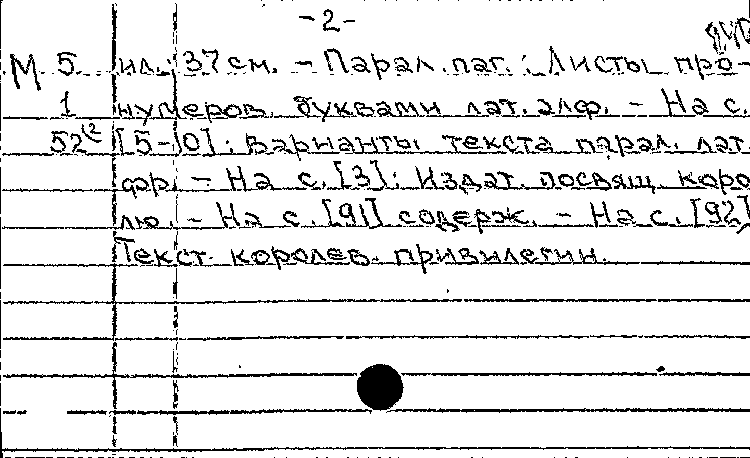 -2-
М 5 ил.; 37 см. - Парал. паг.: Листы про-
1 нумеров. буквами лат. алф. - На с.
52 [5-10]: варианты текста парал. лат.
фр. - На с. [3]: Издат. посвящ. коро
лю. - На с. [91] содерж. - На с. [92]
Текст королев. привилегии.